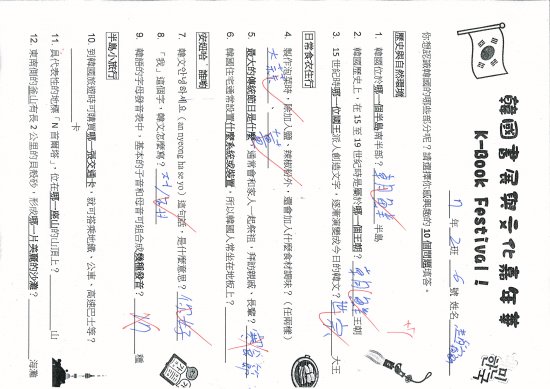 韓國書展與文化嘉年華
K-Book Festival!
7 年 2 班 6 號 姓名
你想認識韓國的哪些部分呢？請選擇你感興趣的 10 個問題填答。
歷史與自然環境
1. 韓國位於哪一個半島南半部？朝鮮半島
2. 韓國歷史上，在 15 至 19 世紀時是屬於哪一個王朝？朝鮮王朝
3. 15 世紀時哪一位國王派人創造文字，逐漸演變成今日的韓文？世宗大王
日常食衣住行
4. 製作泡菜時，除加入鹽、辣椒粉外，還會加入什麼食材調味？（任兩樣）
大蒜、薑
5. 最大的傳統節日是什麼，通常會和家人一起祭祖、拜訪親戚、長輩？
6. 韓國住宅通常設置什麼系統或裝置，所以韓國人常坐在地板上？
安妞哈誰喲
7. 韓文안녕하세요（annyeong ha se yo）這句話，是什麼意思？你好
8. 「我」這個字，韓文怎麼寫？
9. 韓語的字母發音表中，基本的子音和母音可組合成幾種發音？ 種
半島小旅行
10. 到韓國旅遊時可購買哪一張交通卡，就可搭乘地鐵、公車、高速巴士等？
卡
11. 具代表性的地標「N 首爾塔」，位在哪一座山的山頂上？ 山
12. 東南側的釜山有長 2 公里的貝殼砂，形成哪一片美麗的沙灘？ 海灘